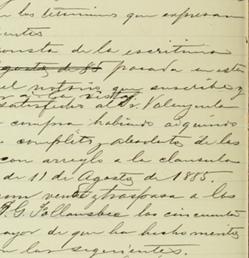 los términos que expresan
entes
onsta de la escritura
agosto de 85 pasada en esta
el notario que suscribe y
satisfecho al Dr. Valenzuela
compra habiendo adquirido
completo, absoluto de las
con arreglo a la clausula
de 11 de Agosto de 1885.
vende y traspasa a los
F. G. Follansbee las cincuenta
ayor de que ha hecho mento
los siguientes.